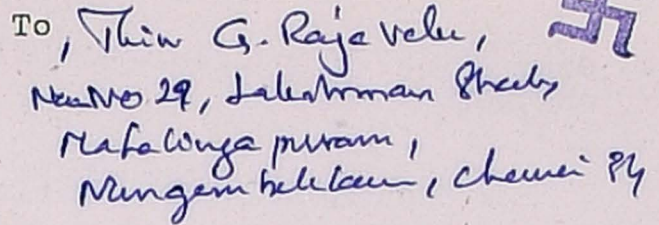 To, Thiru G. Rajavelu,
New No 29, Lakshman Street,
Mahalingapuram,
Nungambakkam, Chennai 34